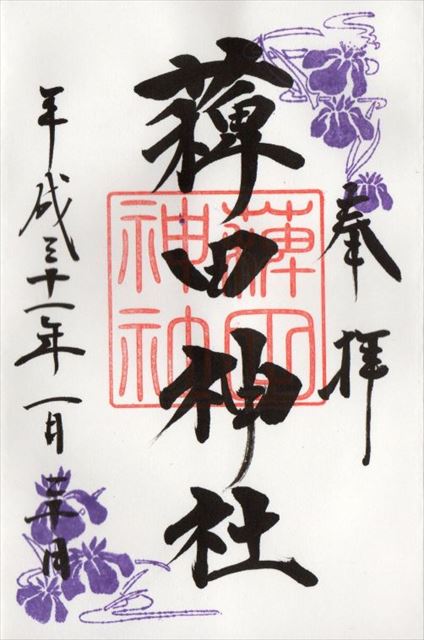 奉拝
薭田神社
薭田
神社
平成三十一年一月三十日